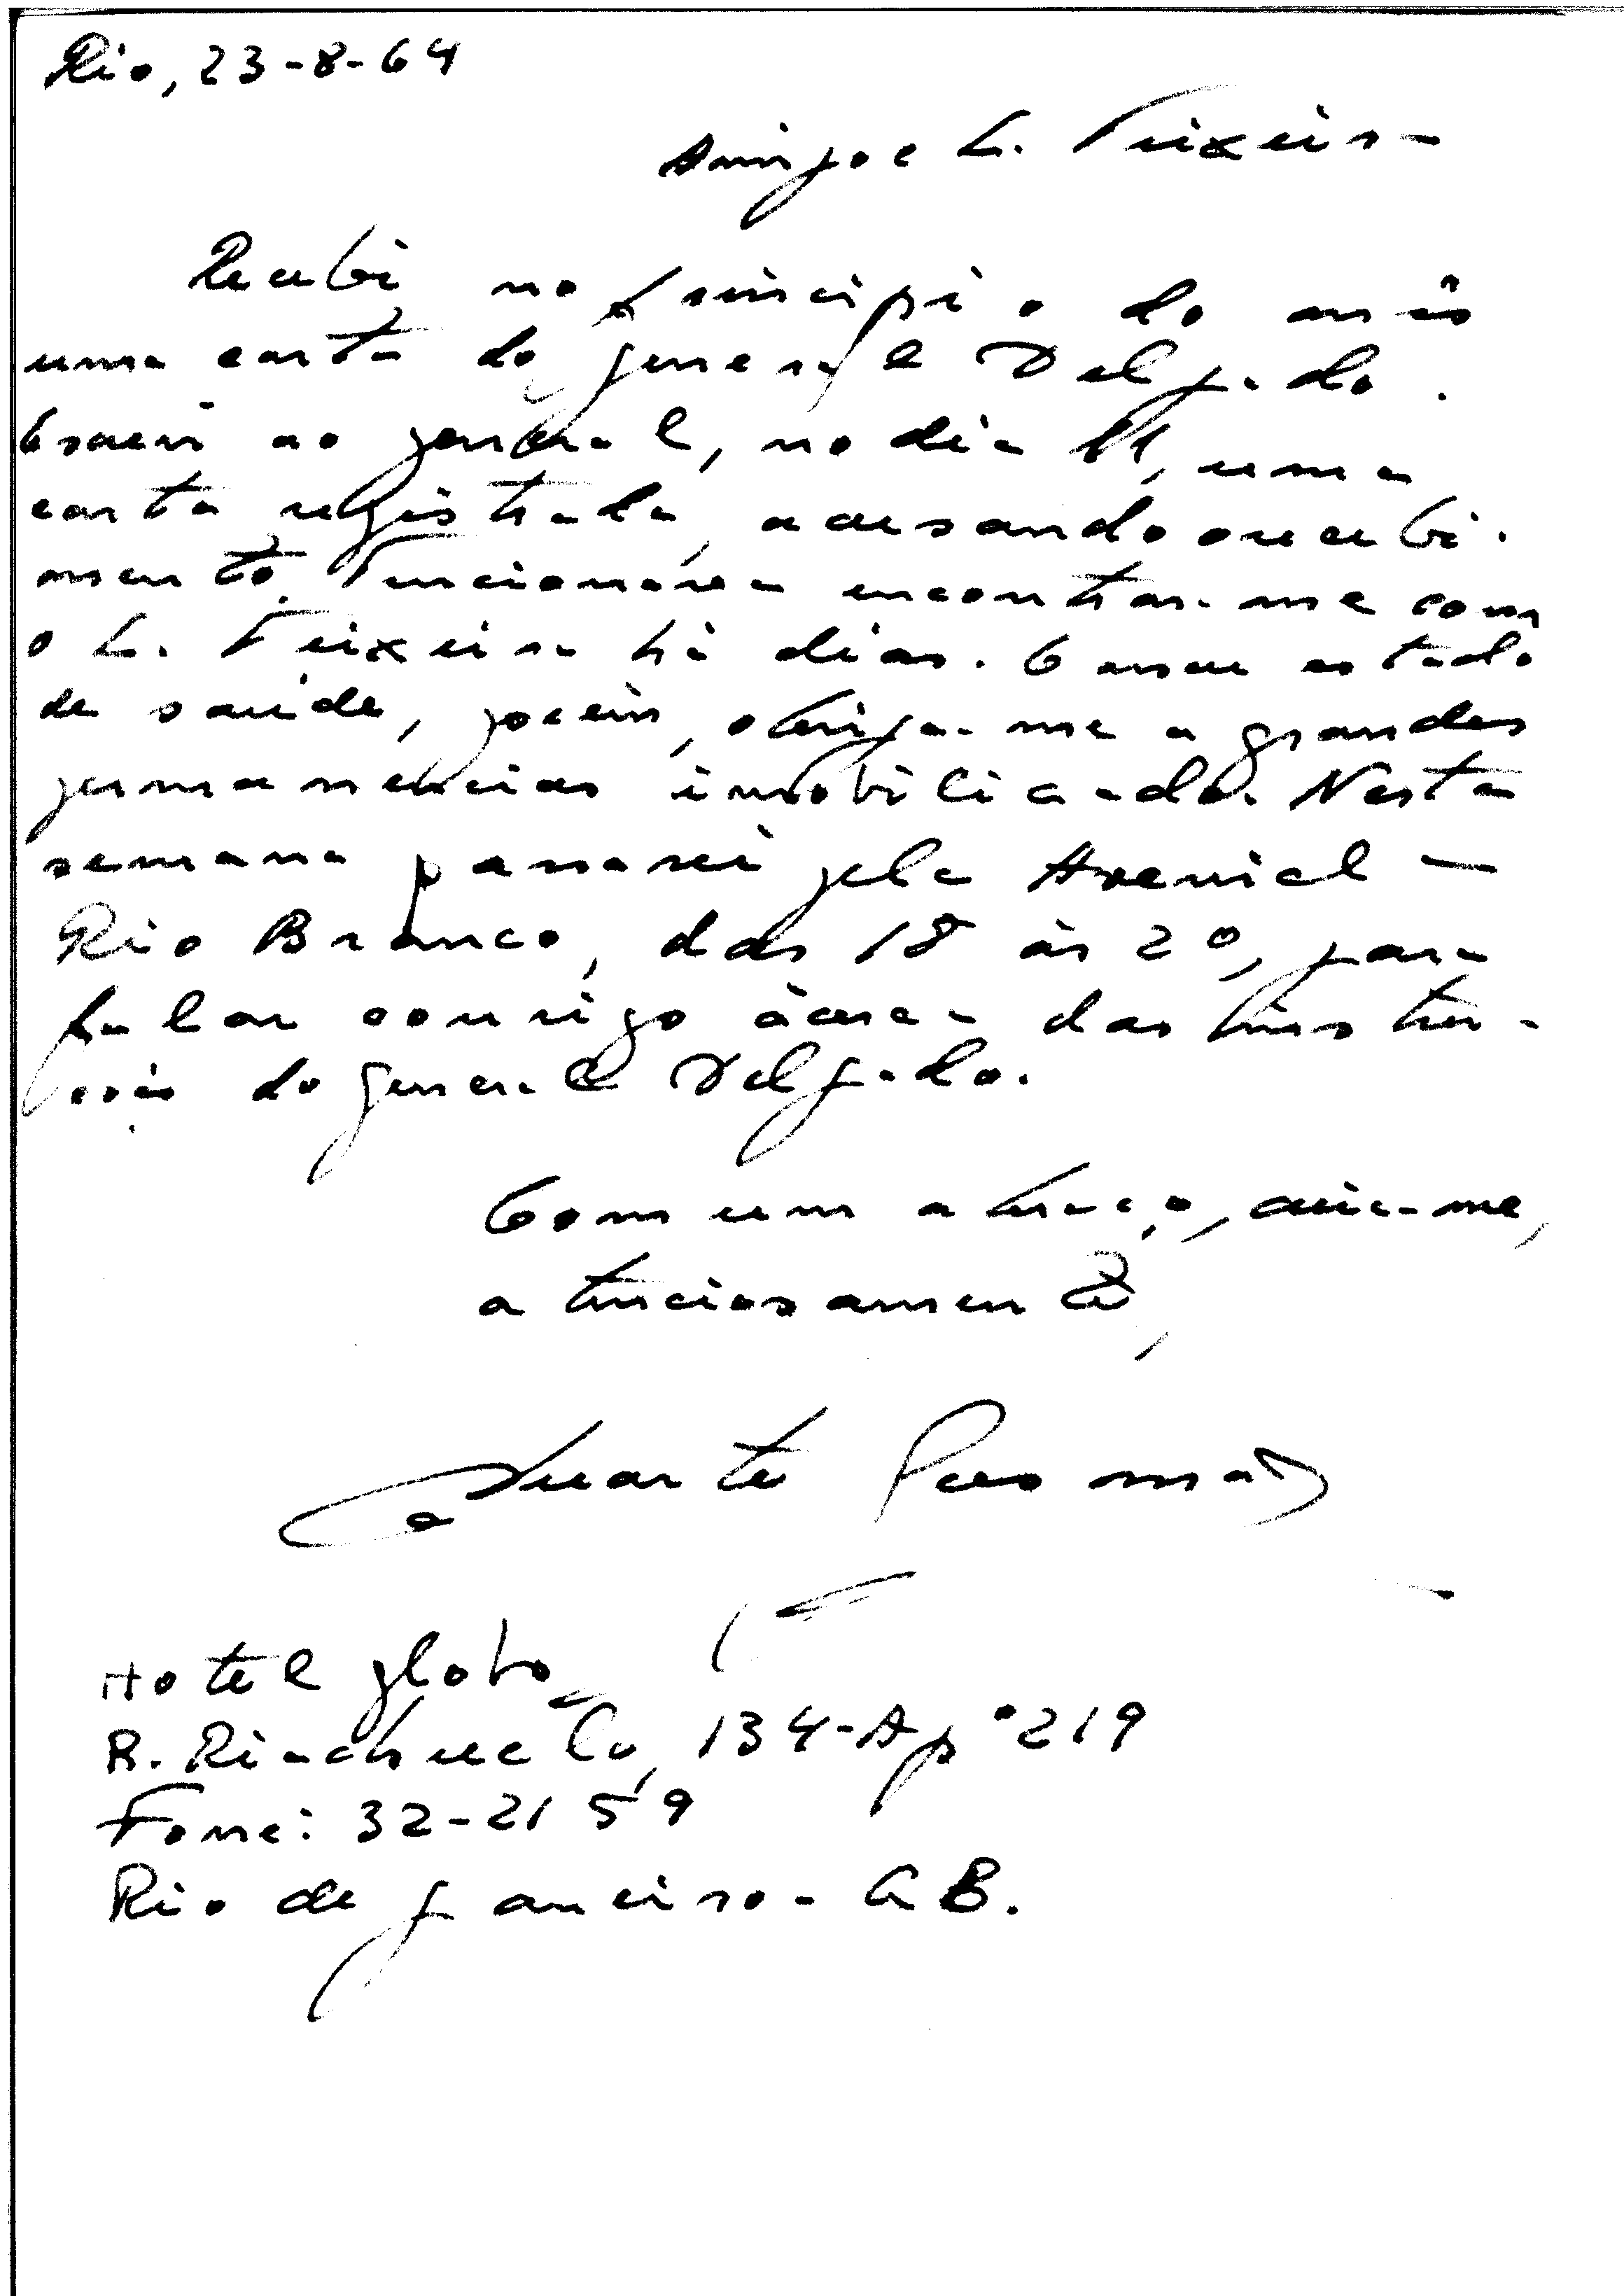 Rio, 23-8-64
Amigo e L. Teixeira
Recebi no principio do mês
uma carta do general Delgado.
Escrevi ao general, no dia 11, uma
carta registrada, acusando o recebi-
mento. Tencionava encontrar-me com
o L. Teixeira há dias. O meu estado
de saúde, porém, obriga-me a grandes
permanencias imobilizado. Nesta
semana passarei pela Avenida
Rio Branco, das 18 às 20, para
falar consigo àcerca das instru-
ções do general Delgado.
Com um abraço, creia-me,
atenciosamente,
Duarte
Hotel Globo
R. Riachuelo, 134-Apº 219
Fone: 32-2159
Rio de Janeiro - GB.